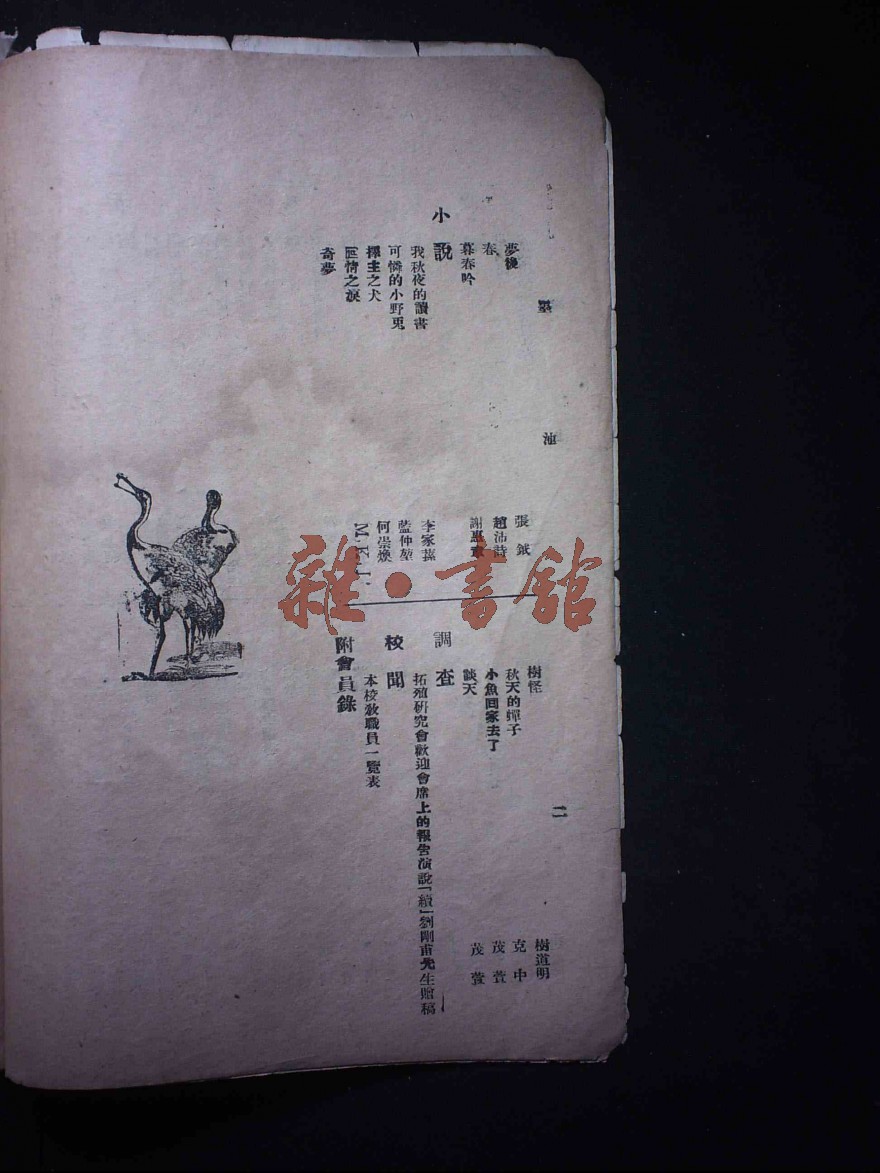 墨
沌
二
夢後 張鉞
春 趙沛詩
暮春吟 謝惠
小說
我秋夜的讀書 李家蓀
可憐的小野兎 藍仲堃
擇主之犬 何崇煥
匡情之淚
奇夢
樹怪 樹道明
秋天的蟬子 克中
小魚回家去了 茂萱
談天 茂萱
調查
拓殖硏究會歡迎會席上的報告演說「續」劉剛甫先生贈稿
校聞
本校敎職員一覽表
附會員錄
雜·書館